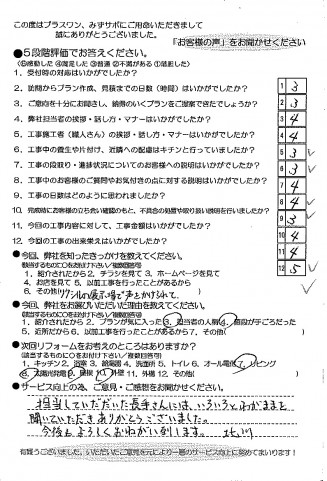 この度はプラスワン、みずサポにご用命いただきまして
誠にありがとうございました。
「お客様の声」をお聞かせください
●5段階評価でお答えください。
(⑤感動した ④満足した ③普通 ②不満がある ①諦めました)
1. 受付時の対応はいかがでしたか?
2. 訪問からプラン作成、見積までの日数(時間)はいかがでしたか?
3. ご意向を十分にお聞きし、納得のいくプランをご提案できたでしょうか?
4. 弊社担当者の挨拶・話し方・マナーはいかがでしたか?
5. 工事施工者(職人さん)の挨拶・話し方・マナーはいかがでしたか?
6. 工事中の養生や片付け、近隣への配慮はキチンと行っていましたか?
7. 工事の段取り・進捗状況についてのお客様への説明はいかがでしたか?
8. 工事中のお客様のご質問やお気付きの点に対する説明はいかがでしたか?
9. 工事の日数はどのように思われましたか?
10. 完成時にお客様の立ち会い確認のもと、不具合の処置や取り扱い説明を行いましたか?
11. 今回の工事内容に対して、工事金額はいかがでしたか?
12. 今回の工事の出来栄えはいかがでしたか?
1 3
2 3
3 4
4 4
5 3
6 4
7 4
8 4
9 3
10 4
11 4
12 5
●今回、弊社を知ったきっかけを教えてください。
(該当するものに○をお付け下さい/複数回答可)
1. 紹介されたから 2. チラシを見て 3. ホームページを見て
4. お店を見て 5. 以前工事を行ったことがあるから
6. その他(リクシルの展示場で声をかけられて
●今回、弊社をお選びいただいた理由を教えてください。
(該当するものに○をお付け下さい/複数回答可)
1. 紹介されたから 2. プランが気に入った 3. 担当者の人柄 4. 値段が手ごろだった
5. 近所だから 6. 以前工事を行ったことがあるから 7. その他( )
●次回リフォームをお考えのところはありますか?
(該当するものに○をお付け下さい/複数回答可)
1. キッチン 2. 浴室 3. 給湯器 4. 洗面所 5. トイレ 6. オール電化 7. リビング
8. 太陽光発電 9. 屋根 10. 外壁 11. 外構 12. その他( )
●サービス向上の為、ご意見・ご感想をお聞かせください。
担当していただいた長手さんには、いろいろとわがままを
聞いていただきありがとうございました。
今後もよろしくおねがい致します。
有難うございました。いただいたご意見を元により一層のサービス向上に努めてまいります!